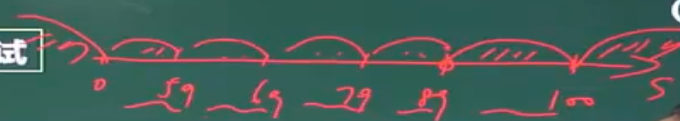 试
0 59 69 79 89 100 S